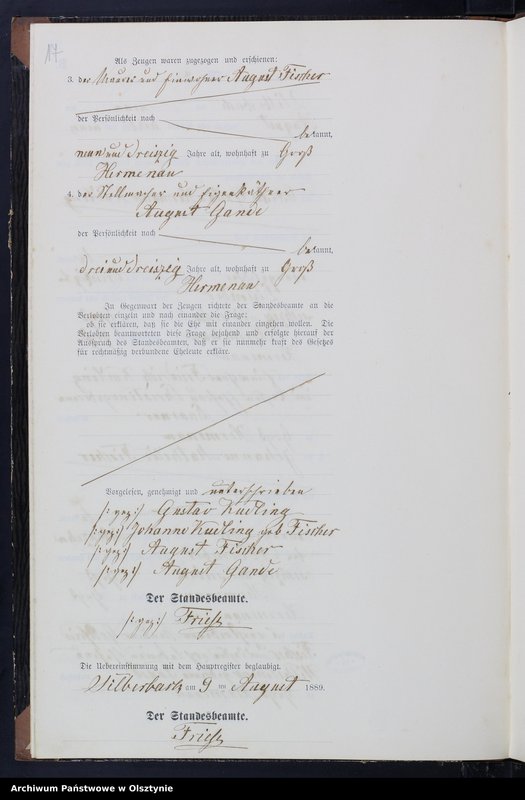 14
Als Zeugen waren zugezogen und erschienen:
3. der Maurer und Einwohner August Fischer
der Persönlichkeit nach
bekannt,
neun und dreiszig Jahre alt, wohnhaft zu Groß
Hermenau
4. der Stellmacher und Eigenkäthner
August Gande
der Persönlichkeit nach
bekannt,
drei und dreiszig Jahre alt, wohnhaft zu Groß
Hermenau
In Gegenwart der Zeugen richtete der Standesbeamte an die
Verlobten einzeln und nach einander die Frage:
ob sie erklären, daß sie die Ehe mit einander eingehen wollen. Die
Verlobten beantworteten diese Frage bejahend und erfolgte hierauf der
Ausspruch des Standesbeamten, daß er sie nunmehr kraft des Gesetzes
für rechtmäßig verbundene Eheleute erkläre.
Vorgelesen, genehmigt und unterschrieben
/:gez:/ Gustav Kudling
/:gez:/ Johanne Kudling geb. Fischer
/:gez:/ August Fischer
/:gez:/ August Gande
Der Standesbeamte.
/:gez:/ Friese
Die Uebereinstimmung mit dem Hauptregister beglaubigt.
Silberbach am 9 ten August 1889.
Der Standesbeamte.
Friese
Archiwum Państwowe w Olsztynie